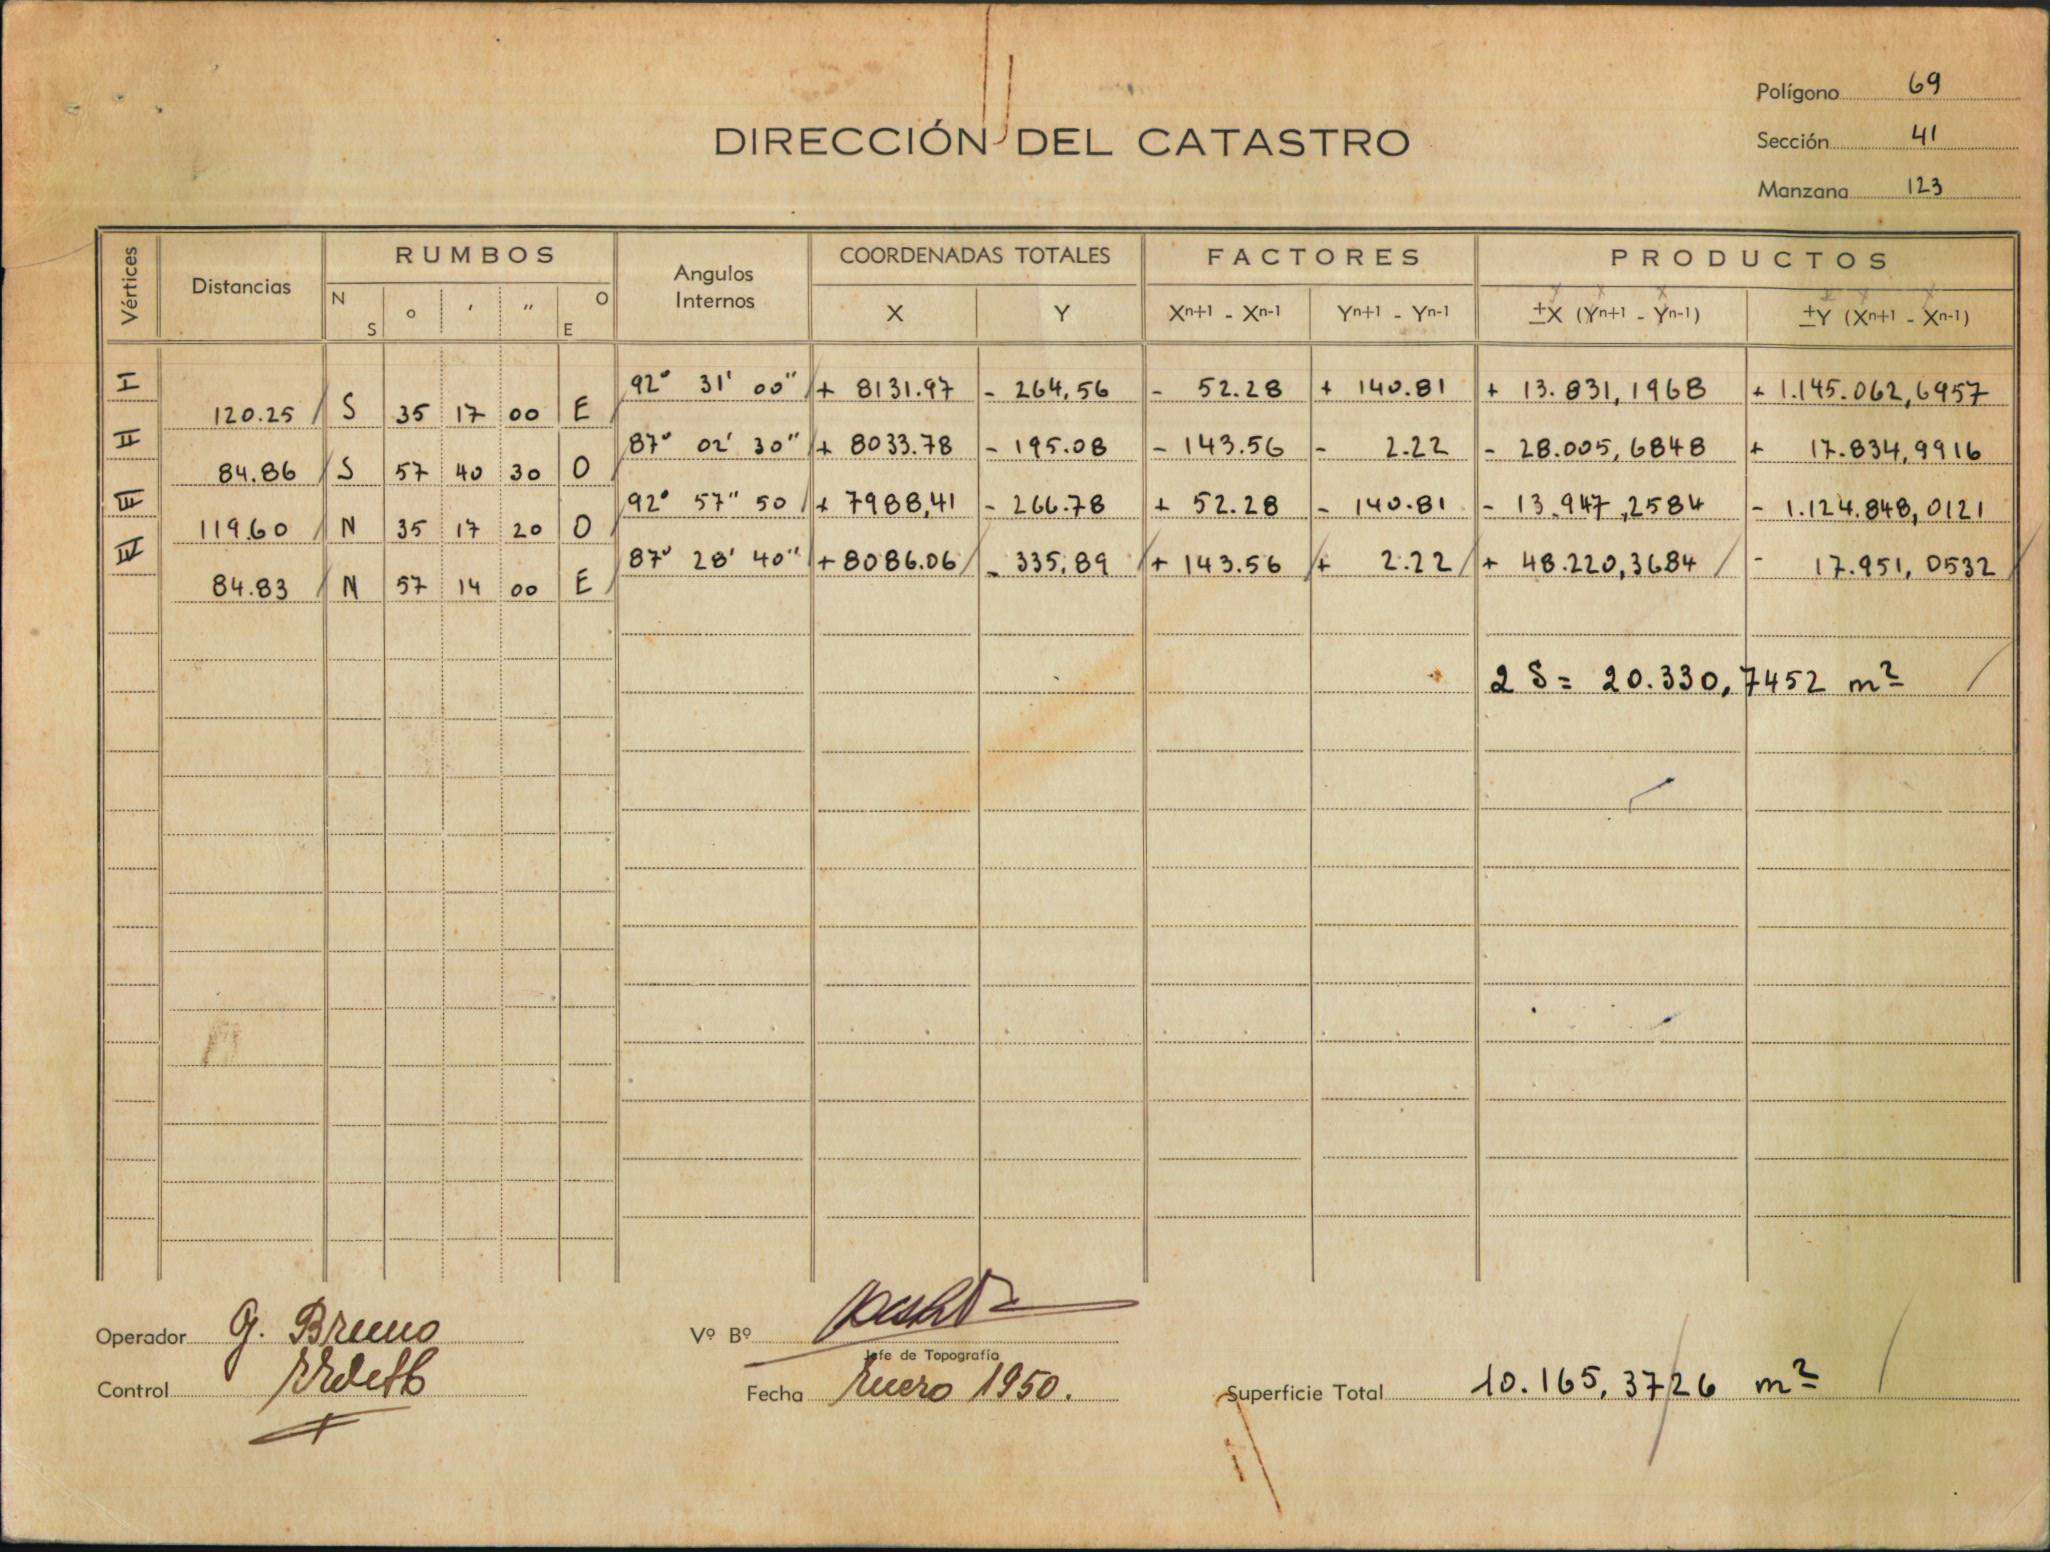 Polígono 69
DIRECCIÓN DEL CATASTRO
Sección 41
Manzana 123
Vértices Distancias RUMBOS Angulos Internos COORDENADAS TOTALES FACTORES PRODUCTOS
N S ° ' " O E X Y Xn+1 - Xn-1 Yn+1 - Yn-1 ±X (Yn+1 - Yn-1) ±Y (Xn+1 - Xn-1)
I 92° 31' 00" + 8131.97 - 264,56 - 52.28 + 140.81 + 13.831,1968 + 1.145.062,6957
120.25 S 35 17 00 E
II 87° 02' 30" + 8033.78 - 195.08 - 143.56 - 2.22 - 28.005,6848 + 17.834,9916
84.86 S 57 40 30 O
III 92° 57" 50 + 7988,41 - 266.78 + 52.28 - 140.81 - 13.947,2584 - 1.124.848,0121
119.60 N 35 17 20 O
IV 87° 28' 40" + 8086.06 - 335.89 + 143.56 + 2.22 + 48.220,3684 - 17.951,0532
84.83 N 57 14 00 E
2 S = 20.330,7452 m²
Operador G. Bruno
Vº Bº
Jefe de Topografía
Control
Fecha Enero 1950.
Superficie Total 10.165,3726 m²